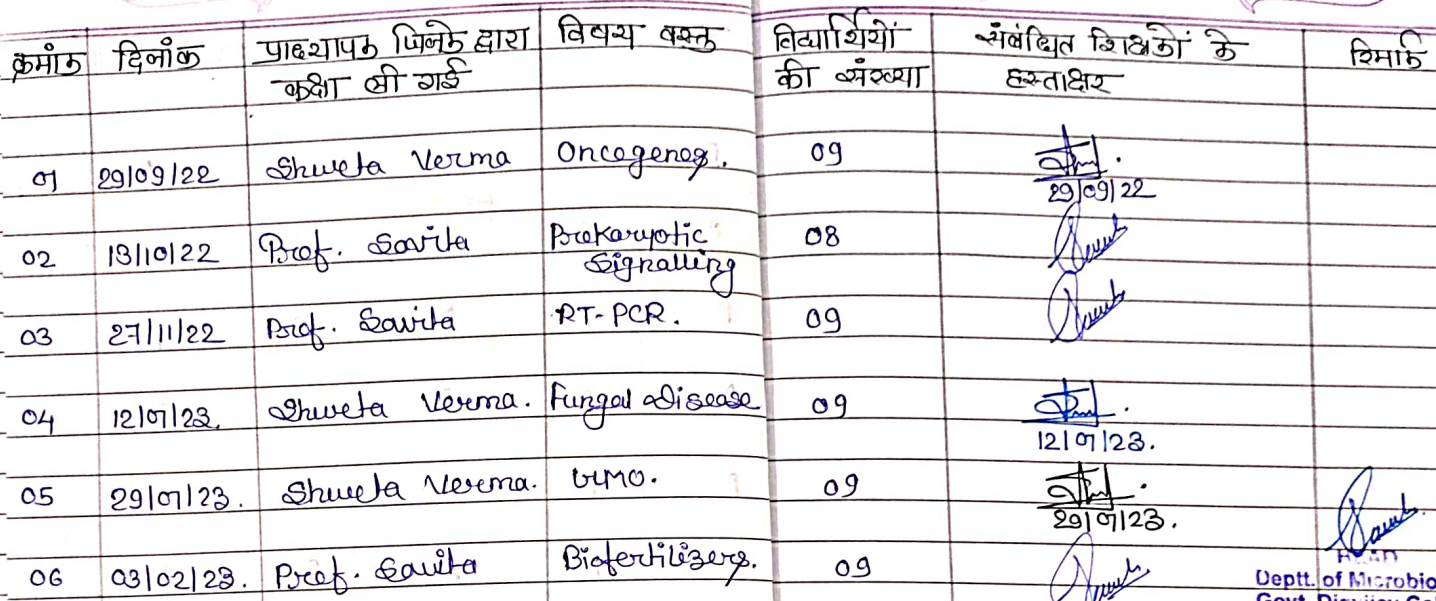 क्रमांक दिनांक प्राध्यापक जिनके द्वारा विषय वस्तु विद्यार्थियों संबंधित शिक्षकों के रिमार्क
कक्षा ली गई की संख्या हस्ताक्षर
01 29/09/22 Shweta Verma Oncogenes. 09
29/09/22
02 13/10/22 Prof. Savita Prokaryotic 08
Signalling
03 27/11/22 Prof. Savita RT-PCR. 09
04 12/01/23. Shweta Verma. Fungal Disease 09
12/01/23.
05 29/01/23. Shweta Verma. GMO. 09
29/01/23.
06 03/02/23. Prof. Savita Biofertilizers. 09
Deptt. of Microbio